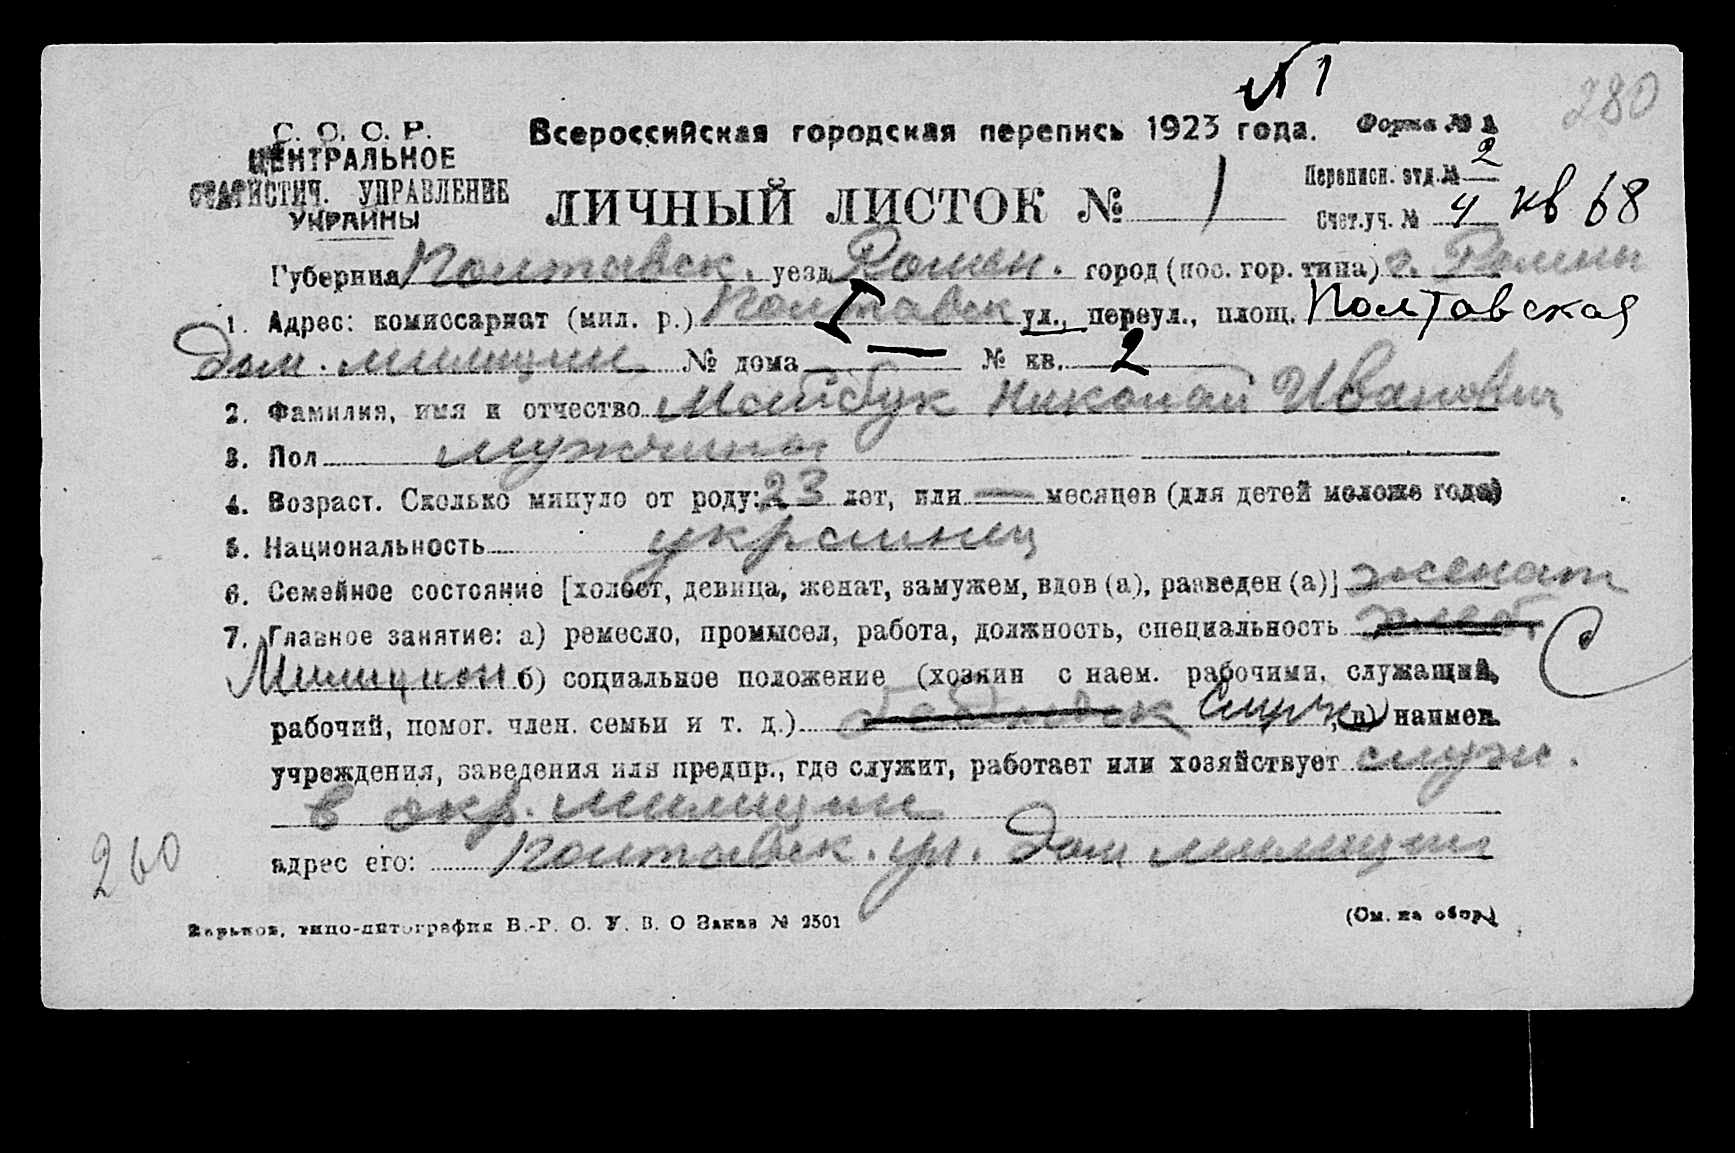 № 1
280
С. С. С. Р.
ЦЕНТРАЛЬНОЕ
СТАТИСТИЧ. УПРАВЛЕНИЕ
УКРАИНЫ
Всероссийская городская перепись 1923 года. Форма № 1
ЛИЧНЫЙ ЛИСТОК № 1
Переписн. отд. № 2
Счет. уч. № 4 кв 68
Губерния Полтавск. уезд Ромен. город (пос. гор. типа) г. Ромны
1. Адрес: комиссариат (мил. р.) Полтавск I ул., переул., площ. Полтавская
Дом. милиции № дома — № кв. 2
2. Фамилия, имя и отчество Майбук Николай Иванович
3. Пол мужчина
4. Возраст. Сколько минуло от роду: 23 лет, или — месяцев (для детей моложе года)
5. Национальность украинец
6. Семейное состояние [холост, девица, женат, замужем, вдов (а), разведен (а)] женат
7. Главное занятие: а) ремесло, промысел, работа, должность, специальность С
Милицион б) социальное положение (хозяин с наем. рабочими, служащий,
рабочий, помог. член. семьи и т. д.) Служ, в) наимен.
учреждения, заведения или предпр., где служит, работает или хозяйствует служ.
в окр. милиции
адрес его: Полтавск. ул. Дом милиции
260
Харьков, типо-литография В.-Р. О. У. В. О Заказ № 2501
(См. на обор.)